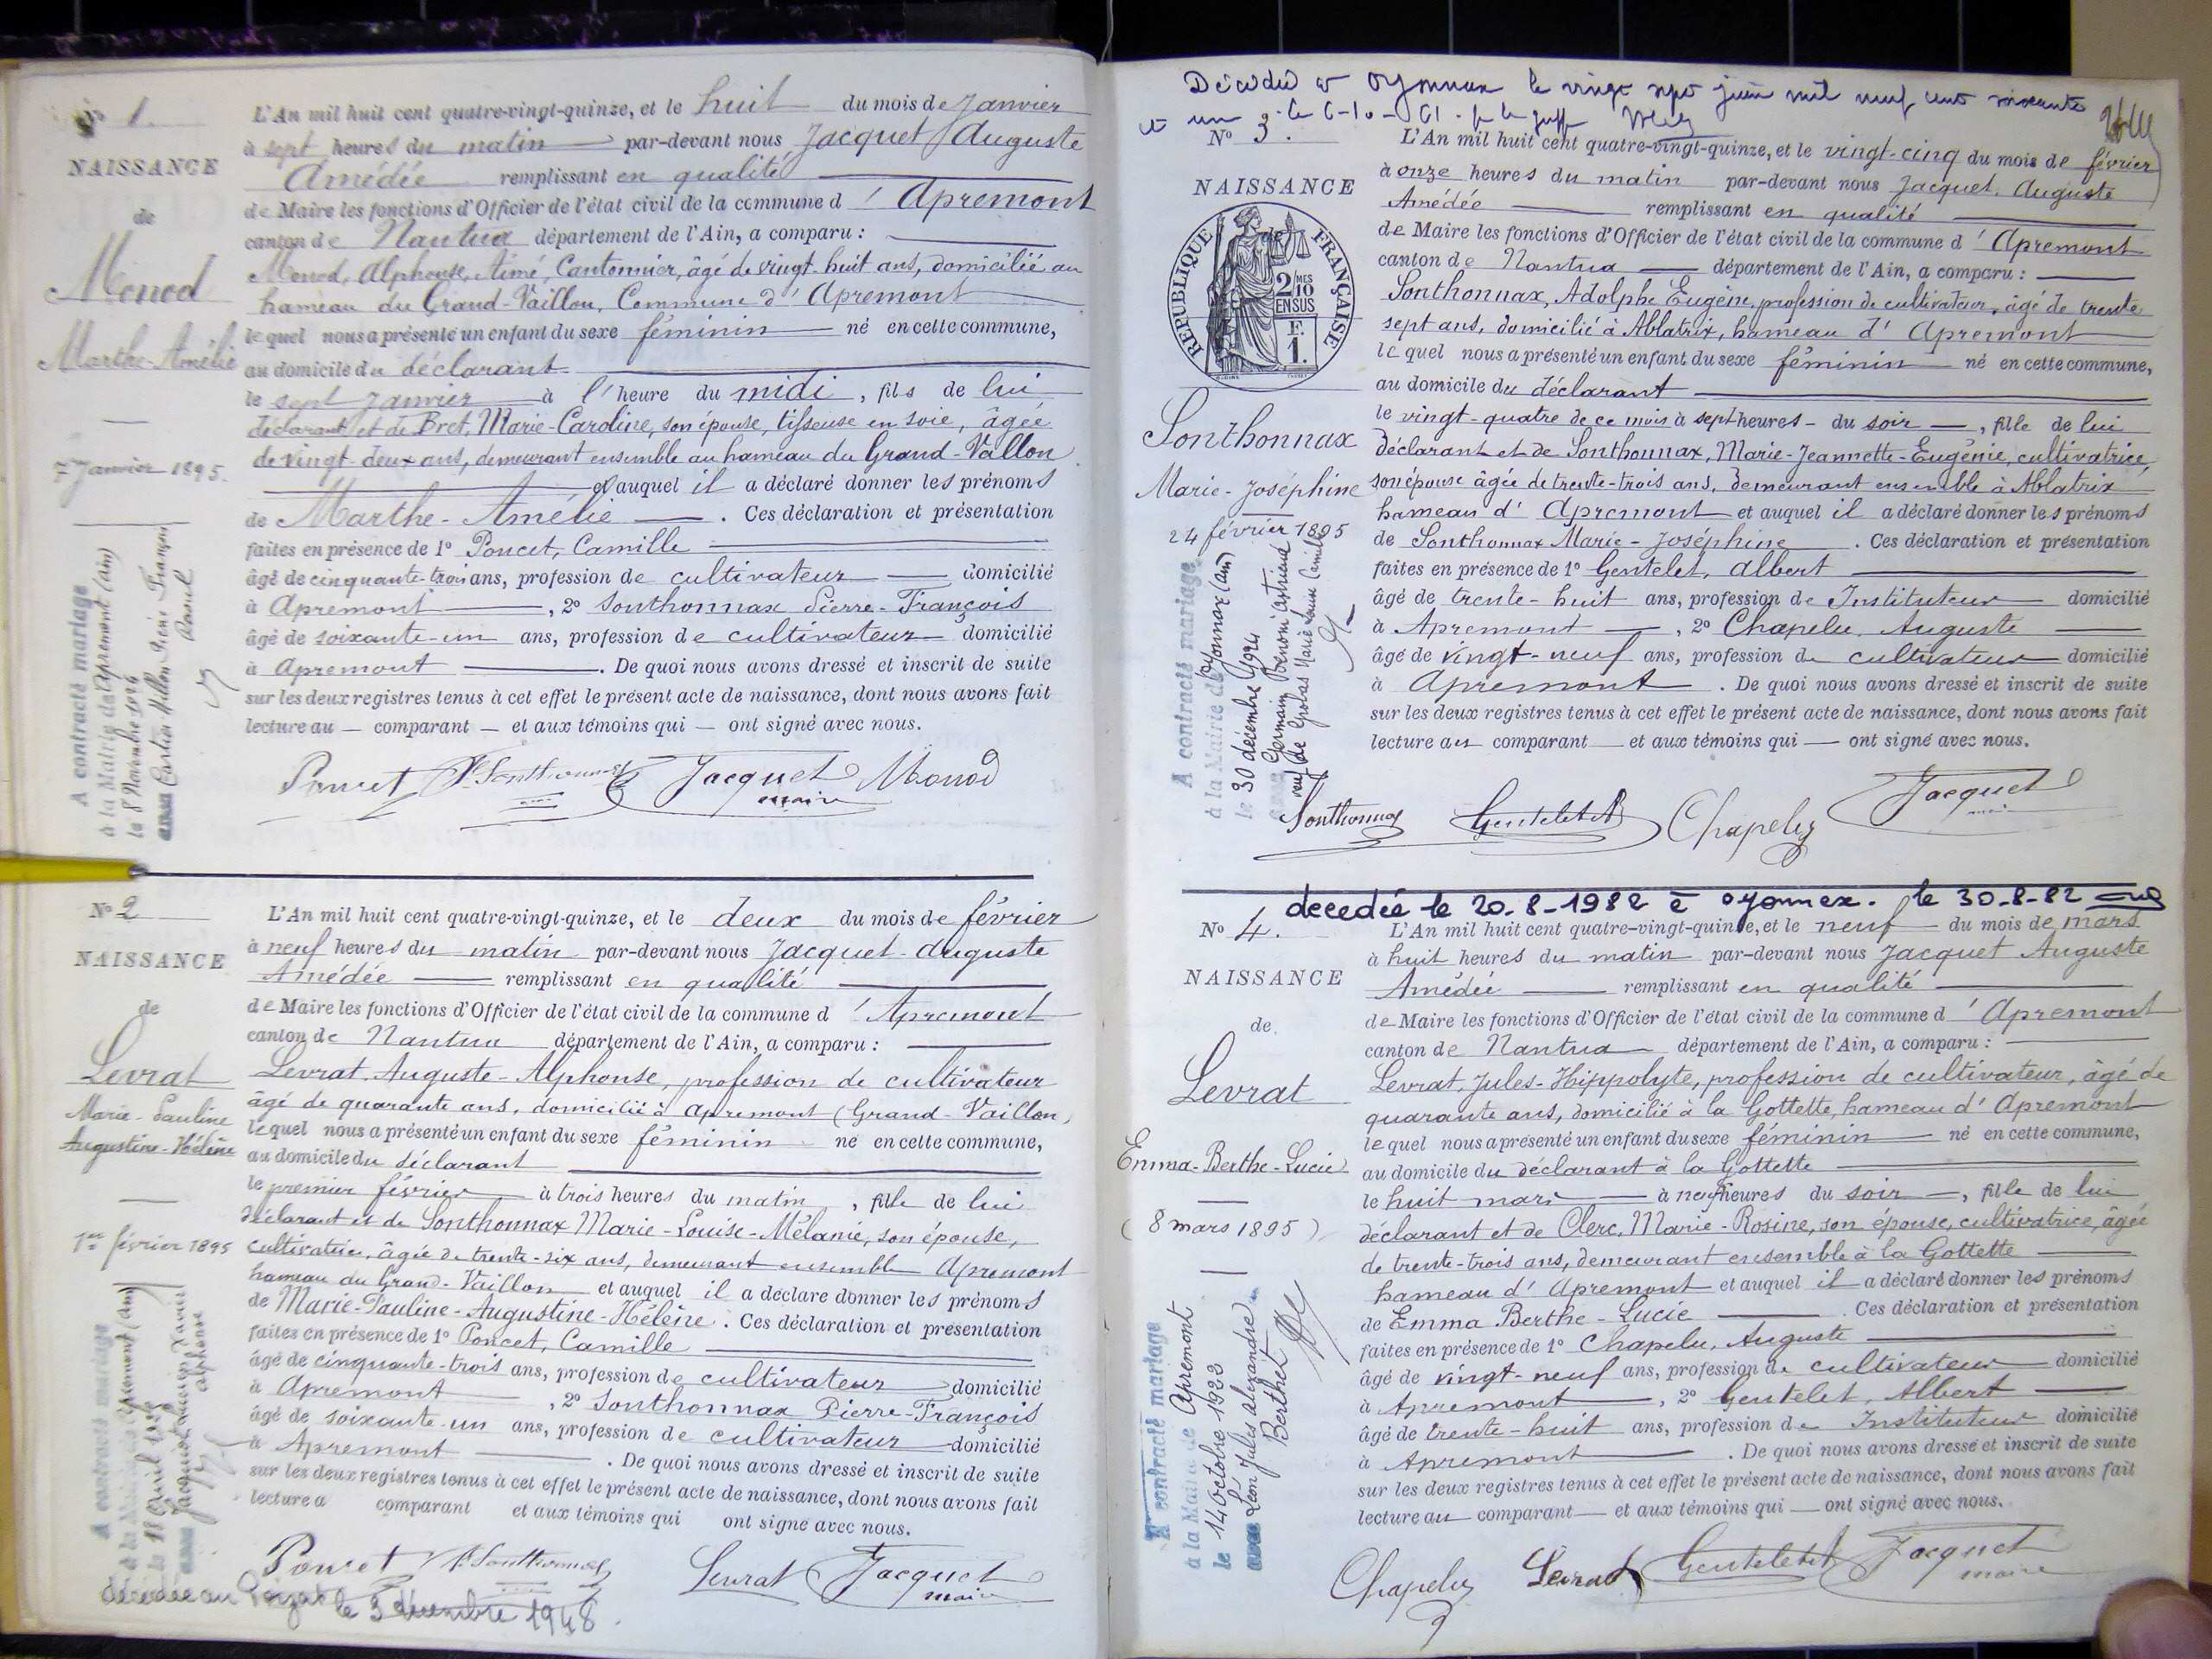 N° 1.
NAISSANCE
de
Monod
Marthe-Amélie
7 Janvier 1895.
A contracté mariage
à la Mairie de Apremont (ain)
le 8 Novembre 1926
avec
L'An mil huit cent quatre-vingt-quinze, et le huit du mois de Janvier
à sept heures du matin par-devant nous Jacquet Auguste
Amédée remplissant en qualité
de Maire les fonctions d'Officier de l'état civil de la commune d' Apremont
canton de Nantua département de l'Ain, a comparu :
Monod, Alphonse, Aimé, Cantonnier, âgé de vingt-huit ans, domicilié au
hameau du Grand-Vaillon, Commune d' Apremont
lequel nous a présenté un enfant du sexe féminin né en cette commune,
au domicile du déclarant
le sept Janvier à l'heure du midi, fils de lui
déclarant et de Bret, Marie-Caroline, son épouse, tisseuse en soie, âgée
de vingt-deux ans, demeurant ensemble au hameau du Grand-Vallon
et auquel il a déclaré donner les prénoms
de Marthe-Amélie. Ces déclaration et présentation
faites en présence de 1° Poncet, Camille
âgé de cinquante-trois ans, profession de cultivateur domicilié
à Apremont, 2° Sonthonnax Pierre-François
âgé de soixante-un ans, profession de cultivateur domicilié
à Apremont. De quoi nous avons dressé et inscrit de suite
sur les deux registres tenus à cet effet le présent acte de naissance, dont nous avons fait
lecture au comparant et aux témoins qui ont signé avec nous.
Poncet P. Sonthonnax Jacquet Monod
maire
N° 2
NAISSANCE
de
Levrat
Marie-Pauline
Augustine-Hélène
1er février 1895
A contracté mariage
à la Mairie de Apremont (ain)
L'An mil huit cent quatre-vingt-quinze, et le deux du mois de février
à neuf heures du matin par-devant nous Jacquet Auguste
Amédée remplissant en qualité
de Maire les fonctions d'Officier de l'état civil de la commune d' Apremont
canton de Nantua département de l'Ain, a comparu :
Levrat, Auguste-Alphonse, profession de cultivateur
âgé de quarante ans, domicilié à Apremont (Grand-Vaillon)
lequel nous a présenté un enfant du sexe féminin né en cette commune,
au domicile du déclarant
le premier février à trois heures du matin, fille de lui
déclarant et de Sonthonnax Marie-Louise-Mélanie, son épouse,
cultivatrice, âgée de trente-six ans, demeurant ensemble Apremont
hameau du Grand-Vaillon et auquel il a déclaré donner les prénoms
de Marie-Pauline-Augustine-Hélène. Ces déclaration et présentation
faites en présence de 1° Poncet, Camille
âgé de cinquante-trois ans, profession de cultivateur domicilié
à Apremont, 2° Sonthonnax Pierre-François
âgé de soixante-un ans, profession de cultivateur domicilié
à Apremont. De quoi nous avons dressé et inscrit de suite
sur les deux registres tenus à cet effet le présent acte de naissance, dont nous avons fait
lecture a comparant et aux témoins qui ont signé avec nous.
Poncet P. Sonthonnax Levrat Jacquet
maire
décédée au le 3 décembre 1948.
Décédée à Oyonnax le vingt sept juin mil neuf cent soixante
et un. le 6-10-61.
N° 3.
NAISSANCE
de
RÉPUBLIQUE FRANÇAISE
2 MES
10
EN SUS
F.
1.
Sonthonnax
Marie-Joséphine
24 février 1895
A contracté mariage
à la Mairie de Oyonnax (ain)
le 30 décembre 1924
L'An mil huit cent quatre-vingt-quinze, et le vingt-cinq du mois de février
à onze heures du matin par-devant nous Jacquet, Auguste
Amédée remplissant en qualité
de Maire les fonctions d'Officier de l'état civil de la commune d' Apremont
canton de Nantua département de l'Ain, a comparu :
Sonthonnax, Adolphe Eugène, profession de cultivateur, âgé de trente
sept ans, domicilié à Ablatrix, hameau d' Apremont
lequel nous a présenté un enfant du sexe féminin né en cette commune,
au domicile du déclarant
le vingt-quatre de ce mois à sept heures du soir, fille de lui
déclarant et de Sonthonnax, Marie-Jeannette-Eugénie, cultivatrice,
son épouse âgée de trente-trois ans, demeurant ensemble à Ablatrix
hameau d' Apremont et auquel il a déclaré donner les prénoms
de Sonthonnax Marie-Joséphine. Ces déclaration et présentation
faites en présence de 1° Gentelet, Albert
âgé de trente-huit ans, profession de Instituteur domicilié
à Apremont, 2° Chapelu, Auguste
âgé de vingt-neuf ans, profession de cultivateur domicilié
à Apremont. De quoi nous avons dressé et inscrit de suite
sur les deux registres tenus à cet effet le présent acte de naissance, dont nous avons fait
lecture au comparant et aux témoins qui ont signé avec nous.
Sonthonnax Gentelet A Chapelu Jacquet
maire
decedée le 20-8-1982 à oyonnax. le 30-8-82
N° 4.
NAISSANCE
de
Levrat
Emma-Berthe-Lucie
(8 mars 1895)
A contracté mariage
à la Mairie de Apremont
le 14 octobre 1933
avec Léon Jules Alexandre
Berthet
L'An mil huit cent quatre-vingt-quinze, et le neuf du mois de mars
à huit heures du matin par-devant nous Jacquet Auguste
Amédée remplissant en qualité
de Maire les fonctions d'Officier de l'état civil de la commune d' Apremont
canton de Nantua département de l'Ain, a comparu :
Levrat, Jules-Hippolyte, profession de cultivateur, âgé de
quarante ans, domicilié à la Gottette, hameau d' Apremont
lequel nous a présenté un enfant du sexe féminin né en cette commune,
au domicile du déclarant à la Gottette
le huit mars à neuf heures du soir, fille de lui
déclarant et de Clerc, Marie-Rosine, son épouse, cultivatrice, âgée
de trente-trois ans, demeurant ensemble à la Gottette
hameau d' Apremont et auquel il a déclaré donner les prénoms
de Emma Berthe-Lucie. Ces déclaration et présentation
faites en présence de 1° Chapelu, Auguste
âgé de vingt-neuf ans, profession de cultivateur domicilié
à Apremont, 2° Gentelet, Albert
âgé de trente-huit ans, profession de Instituteur domicilié
à Apremont. De quoi nous avons dressé et inscrit de suite
sur les deux registres tenus à cet effet le présent acte de naissance, dont nous avons fait
lecture au comparant et aux témoins qui ont signé avec nous.
Chapelu Levrat Gentelet A Jacquet
maire